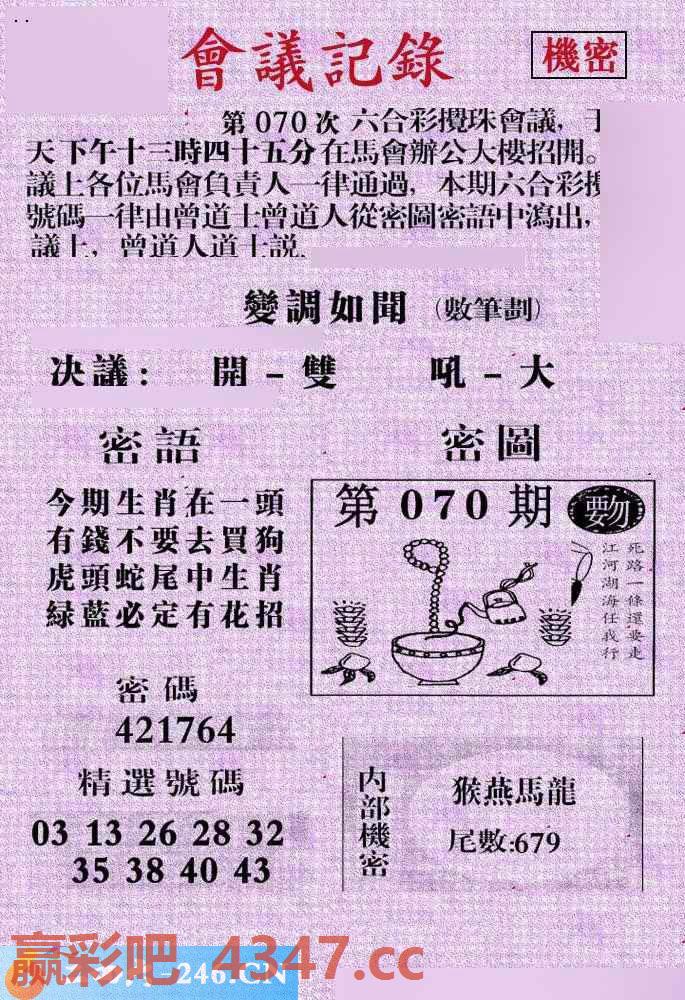 會議記錄
機密
第070次 六合彩攪珠會議,
天下午十三時四十五分在馬會辦公大樓招開。
議上各位馬會負責人一律通過,本期六合彩攪
號碼一律由曾道士曾道人從密圖密語中瀉出,
議上,曾道人道士説
變調如聞(數筆劃)
决議: 開-雙 吼-大
密語
今期生肖在一頭
有錢不要去買狗
虎頭蛇尾中生肖
緑藍必定有花招
密圖
第070期
死路一條還要走
江河湖海任我行
密碼
421764
精選號碼
03 13 26 28 32
35 38 40 43
内部機密
猴燕馬龍
尾數:679
赢彩吧.4347.cc
-246.CN